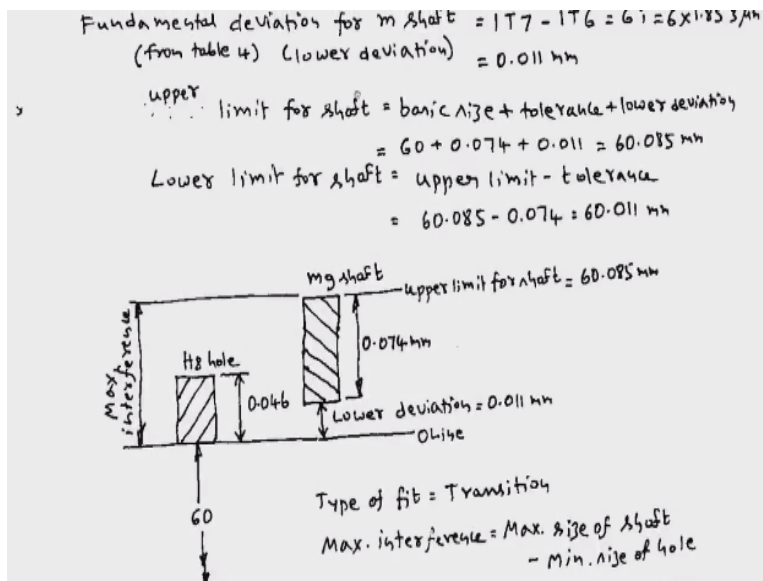 Fundamental deviation for m shaft = IT7 - IT6 = 6i = 6x1.853 µm
(from table 4) (lower deviation) = 0.011 mm
upper limit for shaft = basic size + tolerance + lower deviation
= 60 + 0.074 + 0.011 = 60.085 mm
Lower limit for shaft = upper limit - tolerance
= 60.085 - 0.074 = 60.011 mm
m9 shaft
upper limit for shaft = 60.085 mm
Max interference
0.074 mm
H8 hole
0.046
Lower deviation = 0.011 mm
0 Line
60
Type of fit = Transition
Max. interference = Max. size of shaft
- Min. size of hole